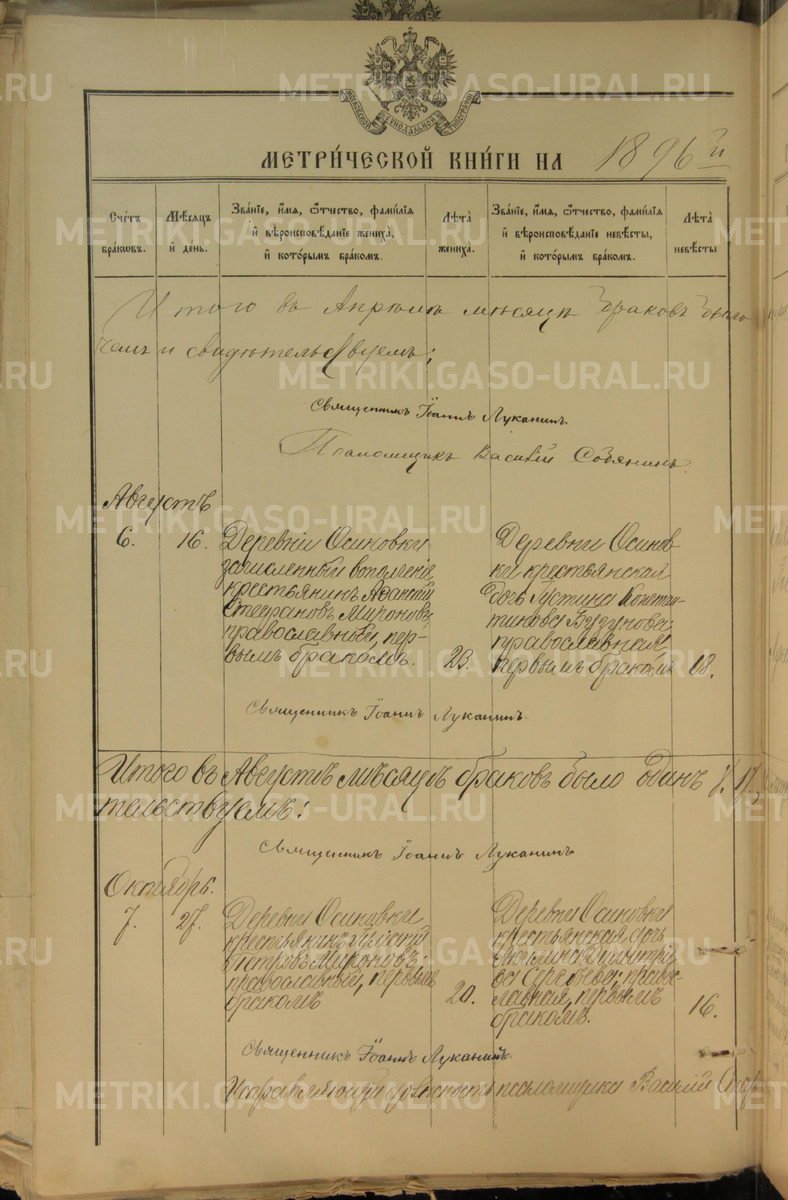 МОСКОВСКОЙ СѴНОДАЛЬНОЙ ТИПОГРАФІИ
МЕТРИ́ЧЕСКОЙ КНИ́ГИ НА 1896 й
Сче́тъ бра́кѡвъ.
Мѣ́сяцъ и҆ де́нь.
Зва́нїе, и҆́мѧ, ѻ҆́тчество, фами́лїѧ и҆ вѣроисповѣ́данїе жениха̀, и҆ кото́рымъ бра́комъ.
Лѣ́та жениха̀.
Зва́нїе, и҆́мѧ, ѻ҆́тчество, фами́лїѧ и҆ вѣроисповѣ́данїе невѣ́сты, и҆ кото́рымъ бра́комъ.
Лѣ́та невѣ́сты
Итого въ Апрѣлѣ мѣсяцѣ браковъ было
чемъ и свидѣтельствуемъ;
Священникъ Іоаннъ Луканинъ.
Псаломщикъ Василій Собянинъ.
Августъ
6. 16.
Деревни Осиновки
зачисленный
крестьянинъ
Стефановъ Мироновъ,
православный, пер-
вымъ бракомъ. 23.
Деревни Осинов-
ки крестьянская
дочь Устина Констан-
тинова
православная
первымъ бракомъ 18.
Священникъ Іоаннъ Луканинъ.
Итого въ Августѣ мѣсяцѣ браковъ было одинъ
тельствуемъ:
Священникъ Іоаннъ Луканинъ
Октябрь.
7. 27.
Деревни Осиновки
крестьянинъ
Петровъ Мироновъ;
православный, первымъ
бракомъ 20.
Деревни Осиновки
крестьянская дочь
Димитріе-
ва Сергеева; право-
славная, первымъ
бракомъ. 16.
Священникъ Іоаннъ Луканинъ.
Исправляющій должность псаломщика Василій
METRIKI.GASO-URAL.RU